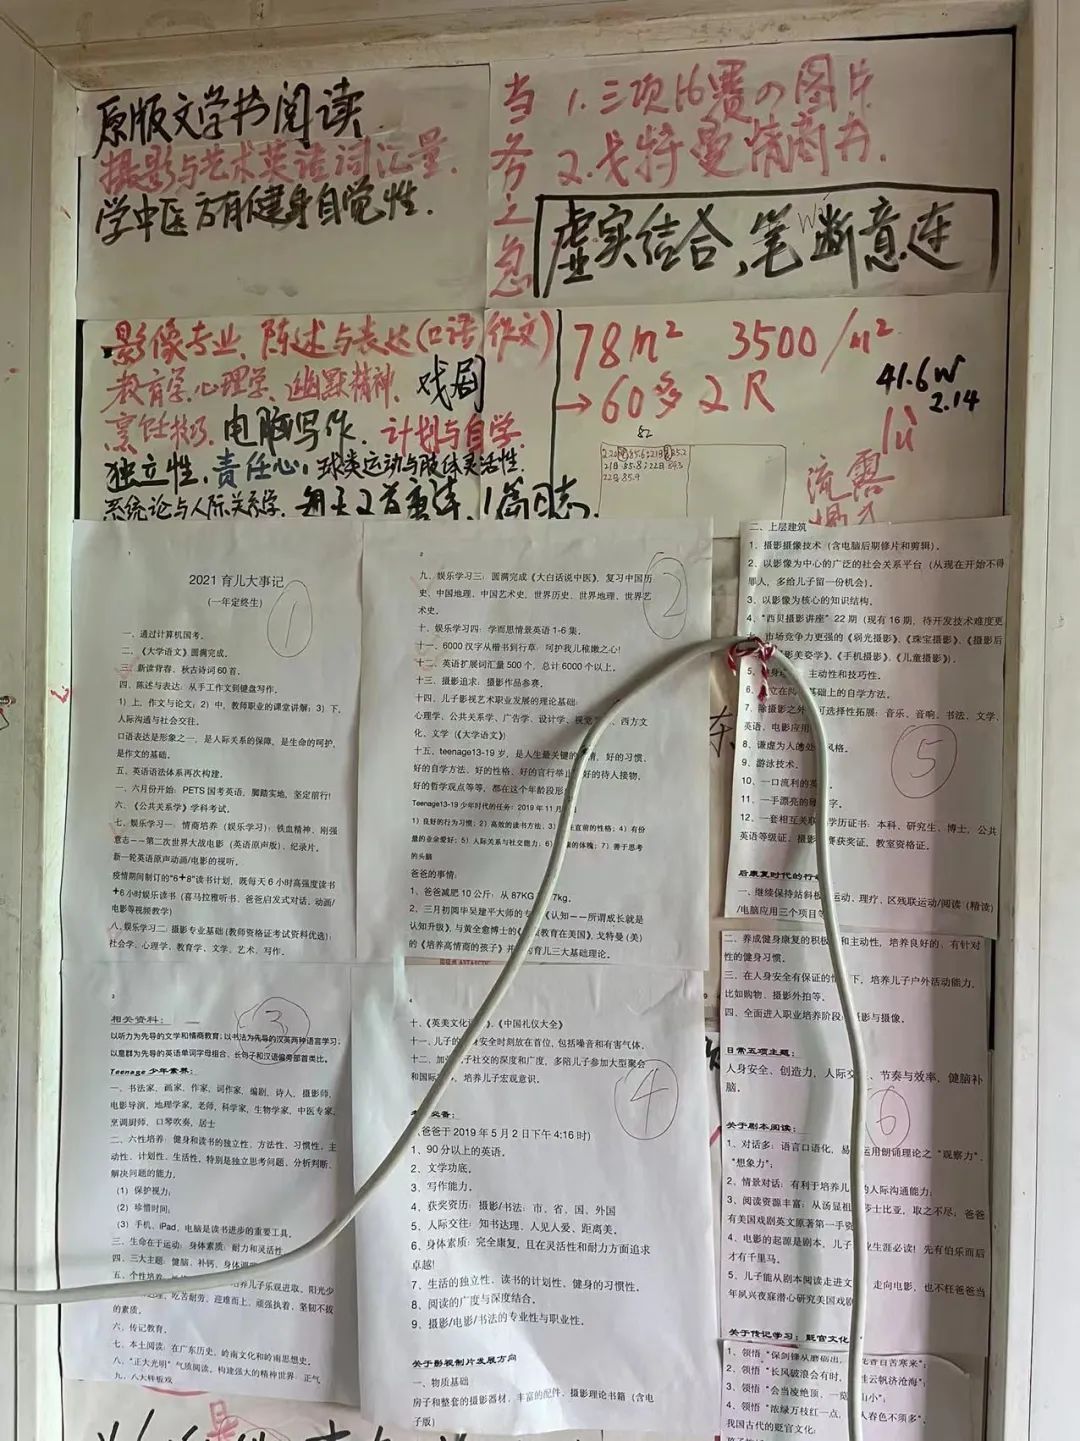 原版文学书阅读
摄影与艺术英语词汇量.
学中医方有健身自觉性.
当务之急
1.三项比赛の图片
2.戈特曼情商书.
虚实结合、笔断意连
影像专业、陈述与表达(口语/作文)
教育学、心理学、幽默精神、戏剧
烹饪技巧、电脑写作、计划与自学.
独立性、责任心、球类运动与肢体灵活性.
系统论与人际关系学.
78m² 3500/m²
→60多2尺
41.6W
2.14
流露
2021 育儿大事记
(一年定终生)
①
一、通过计算机国考。
二、《大学语文》圆满完成。
三、新读背春、秋古诗词 60 首。
四、陈述与表达：从手工作文到键盘写作。
1）上，作文与论文；2）中，教师职业的课堂讲解；3）下，
人际沟通与社会交往。
口语表达是形象之一，是人际关系的保障，是生命的呵护，
是作文的基础。
五、英语语法体系再次构建。
一、六月份开始：PETS 国考英语，脚踏实地，坚定前行！
六、《公共关系学》学科考试。
七、娱乐学习一：情商培养（娱乐学习）：铁血精神、刚强
意志——第二次世界大战电影（英语原声版）、纪录片。
新一轮英语原声动画/电影的视听。
疫情期间制订的“6+8”读书计划，既每天 6 小时高强度读书
+6 小时娱乐读书（喜马拉雅听书、爸爸启发式对话、动画/
电影等视频教学）
八、娱乐学习二：摄影专业基础(教师资格证考试资料优选)：
社会学、心理学、教育学、文学、艺术、写作。
2
②
九、娱乐学习三：圆满完成《大白话说中医》，复习中国历
史、中国地理、中国艺术史，世界历史、世界地理、世界艺
术史。
十、娱乐学习四：学而思情景英语 1-6 集。
十一、6000 汉字从楷书到行草，呵护我儿稚嫩之心！
十二、英语扩展词汇量 500 个，总计 6000 个以上。
十三、摄影追求：摄影作品参赛。
十四、儿子影视艺术职业发展的理论基础：
心理学、公共关系学、广告学、设计学、视觉 、西方文
化、文学（《大学语文》）
十五、teenage13-19 岁，是人生最关键的 ，好的习惯、
好的自学方法、好的性格、好的言行举止 好的待人接物、
好的哲学观点等等，都在这个年龄段形
Teenage13-19 少年时代的任务：2019 年 11 月
1）良好的行为习惯；2）高效的读书方法；3） 直前的性格；4）有份
量的业余爱好；5）人际关系与社交能力；6） 的体魄；7）善于思考
的头脑
爸爸的事情：
1、爸爸减肥 10 公斤：从 87KG 7kg。
2、三月初岡华吴建平大师的专 《认知——所谓成长就是
认知升级》，与黄全愈博士的 教育在美国》，戈特曼(美)
的《培养高情商的孩子》并 育儿三大基础理论。
二、上层建筑
1、摄影摄像技术（含电脑后期修片和剪辑）。
2、以影像为中心的广泛的社会关系平台（从现在开始不得
罪人，多给儿子留一份机会）。
3、以影像为核心的知识结构。
4、“西贝摄影讲座”22 期（现有 16 期，待开发技术难度更
市场竞争力更强的《弱光摄影》、《珠宝摄影》、《摄影后
影美姿学》、《手机摄影》、《儿童摄影》）。
5、 主动性和技巧性。
6、 立在 基础上的自学方法。
7、除摄影之外 可选择性拓展：音乐、音响、书法、文学、
英语、电影应用
8、谦虚为人德处 风格。
9、游泳技术。
10、一口流利的英
11、一手漂亮的 字。
12、一套相互关联 学历证书：本科、研究生、博士，公共
英语等级证、摄影 赛获奖证，教室资格证。
⑤
后康复时代的行
一、继续保持站斜板 运动、理疗，区残联运动/阅读（精读）
/电脑应用三个项目
二、养成健身康复的积极 和主动性，培养良好的、有针对
性的健身习惯。
三、在人身安全有保证的 下，培养儿子户外活动能力，
比如购物、摄影外拍等。
四、全面进入职业培养阶段 摄影与摄像。
日常五项主题：
人身安全、创造力、人际交 、节奏与效率、健脑补
脑。
⑥
关于剧本阅读：
1、对话多：语言口语化，易 运用朗诵理论之“观察力”、
“想象力”；
2、情景对话：有利于培养儿 的人际沟通能力；
3、阅读资源丰富：从汤显祖 莎士比亚，取之不尽，爸爸
有美国戏剧英文原著第一手资
4、电影的起源是剧本，儿子 业生涯必读！先有伯乐而后
才有千里马。
5、儿子能从剧本阅读走进文 走向电影，也不枉爸爸当
年夙兴夜寐潜心研究美国戏剧
关于传记学习：贬官文化
1、领悟“保剑锋从磨砺出， 花香自苦寒来”；
2、领悟“长风破浪会有时， 挂云帆济沧海”；
3、领悟“会当凌绝顶，一览 山小”；
4、领悟“浓绿万枝红一点， 人春色不须多”。
我国古代的贬官文化：
3
③
相关资料：
以听力为先导的文学和情商教育；以书法为先导的汉英两种语言学习；
以意群为先导的英语单词字母组合、长句子和汉语偏旁部首类比。
Teenage 少年素养：
一、书法家、画家、作家、词作家、编剧、诗人、摄影师、
电影导演、地理学家、老师、科学家、生物学家、中医专家、
烹调厨师、口琴吹奏、居士
二、六性培养：健身和读书的独立性、方法性、习惯性、主
动性、计划性、生活性，特别是独立思考问题、分析判断、
解决问题的能力。
（1）保护视力；
（2）珍惜时间；
（3）手机、iPad、电脑是读书进步的重要工具。
三、生命在于运动：身体素质：耐力和灵活性
四、三大主题：健脑、补钙、身体调
五、个性培养 培养儿子乐观进取、阳光少
吃苦耐劳、迎难而上、顽强执着、坚韧不拔
的素质。
六、传记教育。
七、本土阅读：在广东历史、岭南文化和岭南思想史。
八、“正大光明”气质阅读，构建强大的精神世界：正气
九、八大样板戏
4
④
十、《英美文化 》、《中国礼仪大全》
十一、儿子的 身安全时刻放在首位，包括噪音和有害气体。
十二、加强 子社交的深度和广度，多陪儿子参加大型聚会
和国际 ，培养儿子宏观意识。
必备：
（爸爸于 2019 年 5 月 2 日下午 4:16 时）
1、90 分以上的英语。
2、文学功底。
3、写作能力。
4、获奖资历：摄影/书法：市、省、国、外国
5、人际交往：知书达理、人见人爱、距离美。
6、身体素质：完全康复，且在灵活性和耐力方面追求
卓越！
7、生活的独立性、读书的计划性、健身的习惯性。
8、阅读的广度与深度结合。
9、摄影/电影/书法的专业性与职业性。
关于影视制片发展方向
一、物质基础
房子和整套的摄影器材，丰富的配件，摄影理论书籍（含电
子版）